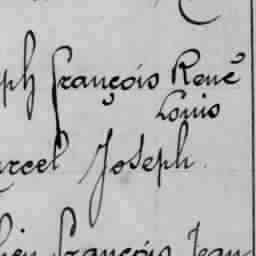 ph françois René
Louis
arcel Joseph
françois Jean